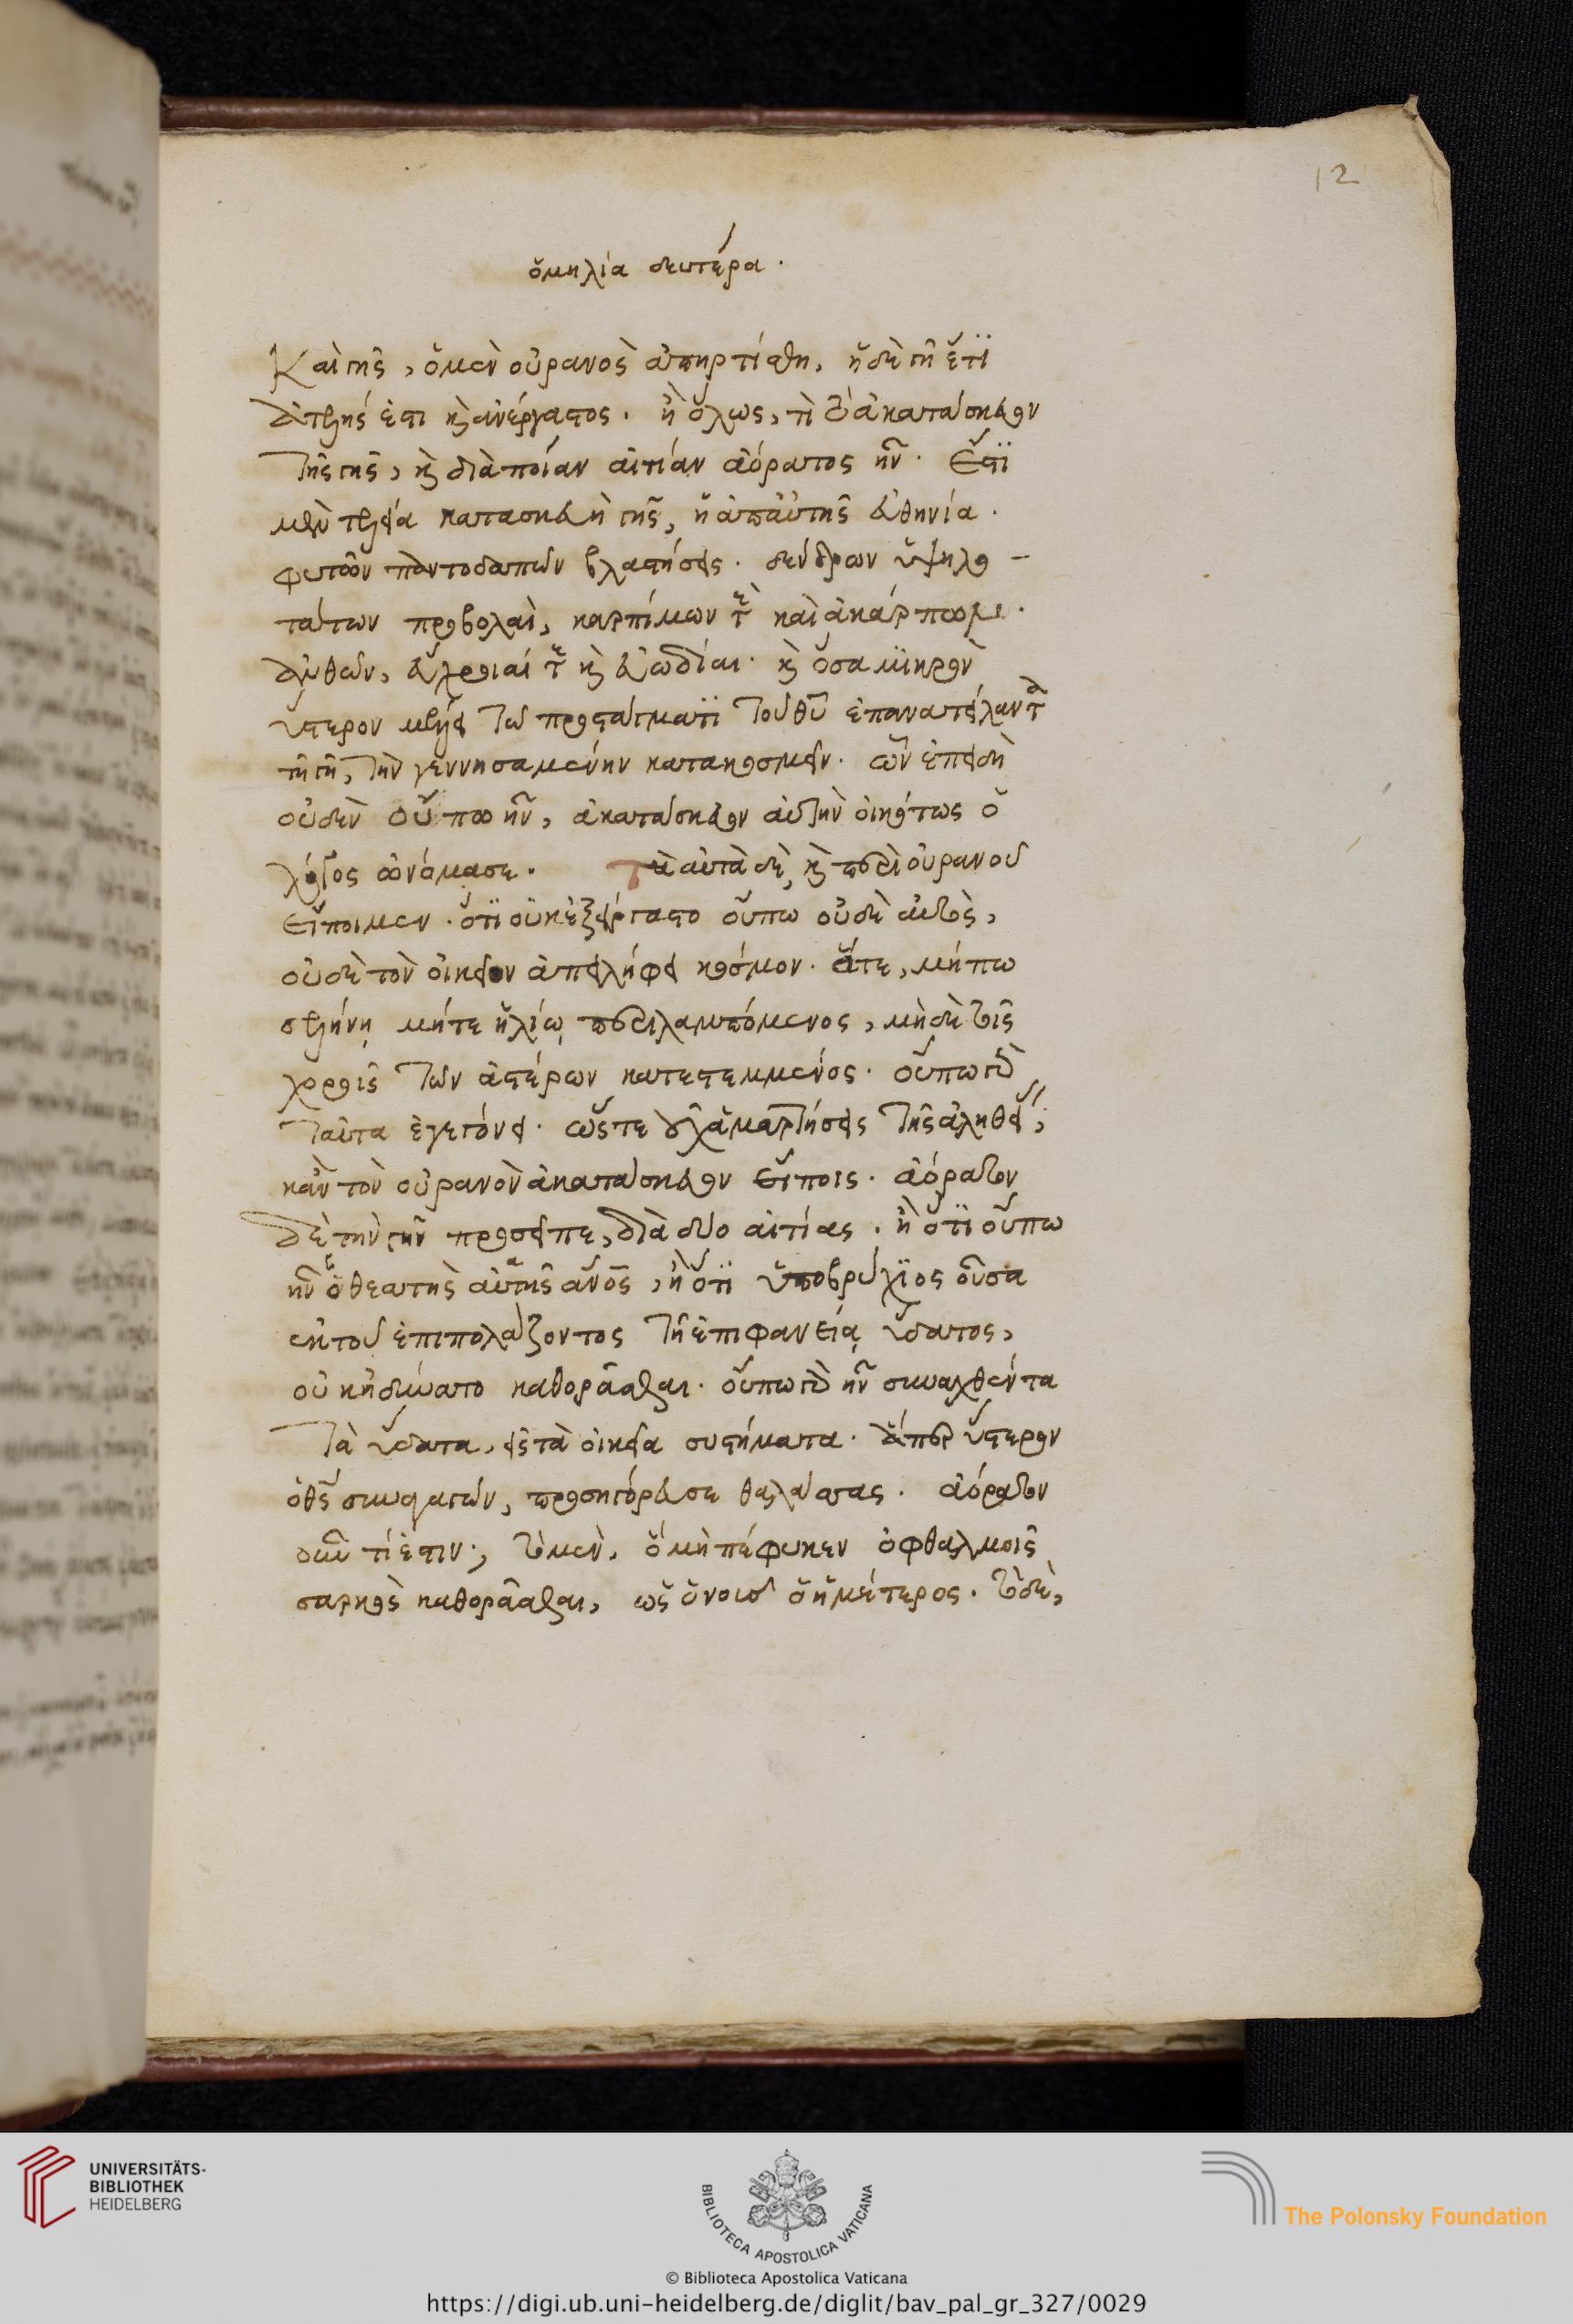 12
ὁμηλία δευτέρα.
Καὶ γῆς, ὁ μὲν οὐρανὸς ἀπηρτίσθη, ἡ δὲ γῆ ἔτι
ἀτελής ἐστι κ ἀνέργαστος. ἢ ὅλως, τί τὸ ἀκατάσκευον
τῆς γῆς, κ διὰ ποίαν αἰτίαν ἀόρατος ἦν. Ἔστι
μὲν τελεία κατασκευὴ γῆς, ἡ ἀπ' αὐτῆς εὐθηνία.
φυτῶν παντοδαπῶν βλαστήσεις. δένδρων ὑψηλο-
τάτων προβολαὶ, καρπίμων τε καὶ ἀκάρπων.
ἀνθῶν, εὔχροιαί τε κ εὐωδίαι. κ ὅσα μικρὸν
ὕστερον μέλλει τῷ προστάγματι τοῦ θυ ἐπανατείλαντα
τῇ γῇ, τὴν γεννησαμένην κατακοσμεῖν. ὧν ἐπειδὴ
οὐδὲν οὔπω ἦν, ἀκατάσκευον αὐτὴν εἰκότως ὁ
λόγος ὠνόμασε. Τὰ αὐτὰ δὲ, κ περὶ οὐρανοῦ
εἴποιμεν. ὅτι οὐκ ἐξείργαστο οὔπω οὐδὲ αὐτὸς,
οὐδὲ τὸν οἰκεῖον ἀπειλήφει κόσμον. ἅτε, μήπω
σελήνῃ μήτε ἡλίῳ περιλαμπόμενος, μηδὲ τοῖς
χοροῖς τῶν ἀστέρων κατεστεμμένος. οὔπω γὰρ
ταῦτα ἐγεγόνει. ὥστε οὐχ ἁμαρτήσεις τῆς ἀληθεί,
κἂν τὸν οὐρανὸν ἀκατάσκευον εἴποις. ἀόρατον
δὲ τὴν γῆν προσεῖπε, διὰ δύο αἰτίας. ἢ ὅτι οὔπω
ἦν ὁ θεατὴς αὐτῆς ανος, ἢ ὅτι ὑποβρύχιος οὖσα
ἐκ τοῦ ἐπιπολάζοντος τῇ ἐπιφανείᾳ ὕδατος,
οὐκ ἠδύνατο καθορᾶσθαι. οὔπω γὰρ ἦν συναχθέντα
τὰ ὕδατα, εἰς τὰ οἰκεῖα συστήματα. ἅπερ ὕστερον
ὁ θς συναγαγὼν, προσηγόρευσε θαλάσσας. ἀόρατον
οὖν τί ἐστιν; τὸ μὲν, ὃ μὴ πέφυκεν ὀφθαλμοῖς
σαρκὸς καθορᾶσθαι, ὡς ὁ νοῦς ὁ ἡμέτερος. τὸ δὲ,
UNIVERSITÄTS-
BIBLIOTHEK
HEIDELBERG
BIBLIOTECA APOSTOLICA VATICANA
The Polonsky Foundation
© Biblioteca Apostolica Vaticana
https://digi.ub.uni-heidelberg.de/diglit/bav_pal_gr_327/0029